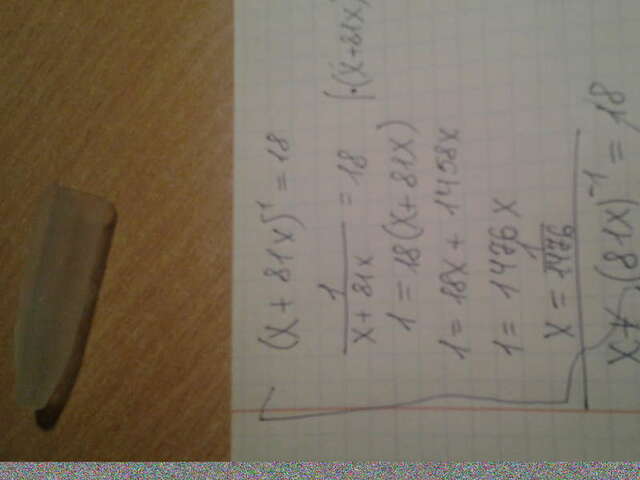 (x + 81x)⁻¹ = 18
1/(x + 81x) = 18 /·(x+81x)
1 = 18(x + 81x)
1 = 18x + 1458x
1 = 1476x
x = 1/1476
(81x)⁻¹ = 18